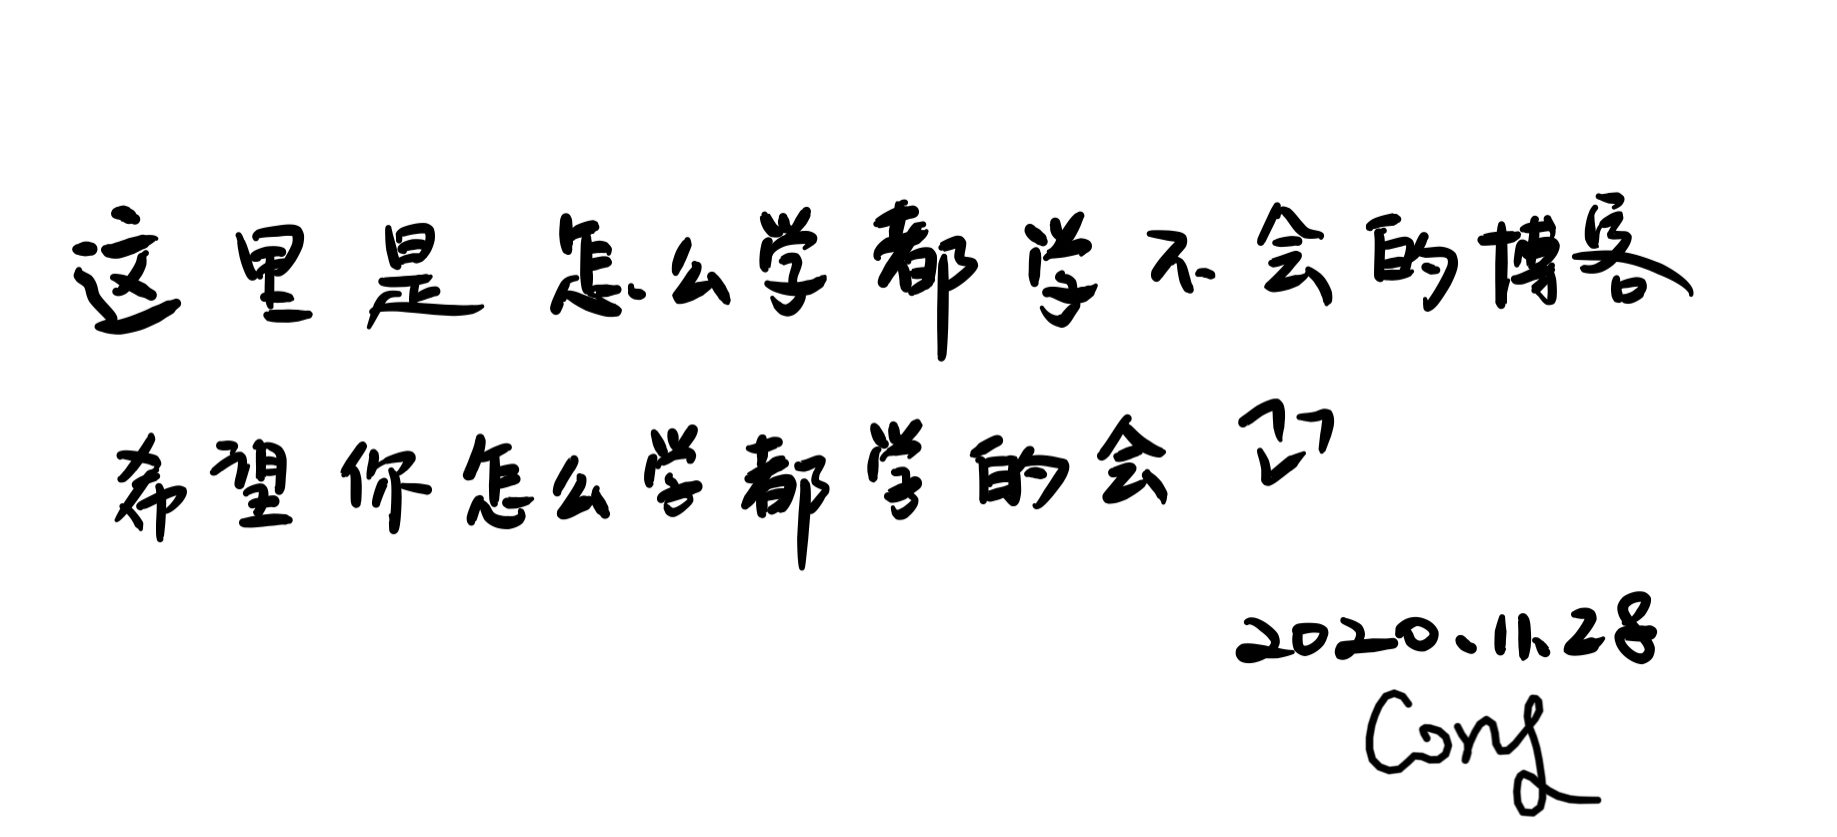 这里是怎么学都学不会的博客
希望你怎么学都学的会
2020.11.28
Cong